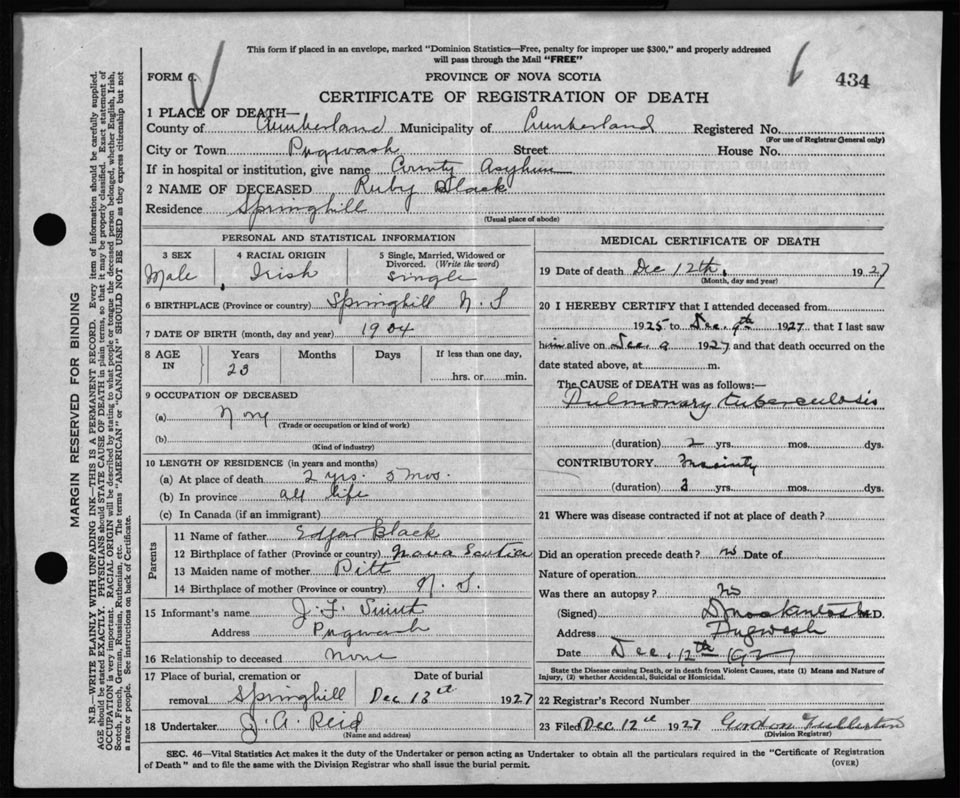 This form if placed in an envelope, marked "Dominion Statistics—Free, penalty for improper use $300," and properly addressed
will pass through the Mail "FREE"
FORM 6. PROVINCE OF NOVA SCOTIA 6 434
CERTIFICATE OF REGISTRATION OF DEATH
1 PLACE OF DEATH—
County of Cumberland Municipality of Cumberland Registered No.
(For use of Registrar General only)
City or Town Pugwash Street House No.
If in hospital or institution, give name County Asylum
2 NAME OF DECEASED Ruby Black
Residence Springhill
(Usual place of abode)
PERSONAL AND STATISTICAL INFORMATION
3 SEX 4 RACIAL ORIGIN 5 Single, Married, Widowed or
Divorced. (Write the word)
Male Irish Single
6 BIRTHPLACE (Province or country) Springhill N. S
7 DATE OF BIRTH (month, day and year) 1904
8 AGE IN Years Months Days If less than one day,
23 hrs. or min.
9 OCCUPATION OF DECEASED
(a) None
(Trade or occupation or kind of work)
(b)
(Kind of industry)
10 LENGTH OF RESIDENCE (in years and months)
(a) At place of death 2 yrs. 5 mos.
(b) In province all life
(c) In Canada (if an immigrant)
Parents
11 Name of father Edgar Black
12 Birthplace of father (Province or country) Nova Scotia
13 Maiden name of mother Pitt
14 Birthplace of mother (Province or country) N. S.
15 Informant's name J. F.
Address Pugwash
16 Relationship to deceased None
17 Place of burial, cremation or Date of burial
removal Springhill Dec 13th 1927
18 Undertaker J. A. Reid
(Name and address)
MEDICAL CERTIFICATE OF DEATH
19 Date of death Dec 12th, 1927
(Month, day and year)
20 I HEREBY CERTIFY that I attended deceased from
1925 to Dec. 9th 1927 that I last saw
him alive on Dec. 9 1927 and that death occurred on the
date stated above, at m.
The CAUSE OF DEATH was as follows:—
Pulmonary tuberculosis
(duration) 2 yrs. mos. dys.
CONTRIBUTORY Insanity
(duration) yrs. mos. dys.
21 Where was disease contracted if not at place of death?
Did an operation precede death? no Date of
Nature of operation
Was there an autopsy? No
(Signed) D Mackintosh M.D.
Address Pugwash
Date Dec. 12th 1927
State the Disease causing Death, or in death from Violent Causes, state (1) Means and Nature of
Injury, (2) whether Accidental, Suicidal or Homicidal.
22 Registrar's Record Number
23 Filed Dec 12th 1927 Gordon Fullerton
(Division Registrar)
SEC. 46—Vital Statistics Act makes it the duty of the Undertaker or person acting as Undertaker to obtain all the particulars required in the "Certificate of Registration
of Death" and to file the same with the Division Registrar who shall issue the burial permit. (OVER)
MARGIN RESERVED FOR BINDING
N.B.—WRITE PLAINLY WITH UNFADING INK—THIS IS A PERMANENT RECORD. Every item of information should be carefully supplied.
AGE should be stated EXACTLY. PHYSICIANS should STATE CAUSE OF DEATH in plain terms, so that it may be properly classified. Exact statement of
OCCUPATION is very important. RACIAL ORIGIN will be described by stating to what people or tongue the deceased person belonged, whether English, Irish,
Scotch, French, German, Russian, Ruthenian, etc. The terms "AMERICAN" or "CANADIAN" SHOULD NOT BE USED as they express citizenship but not
a race or people. See instructions on back of Certificate.